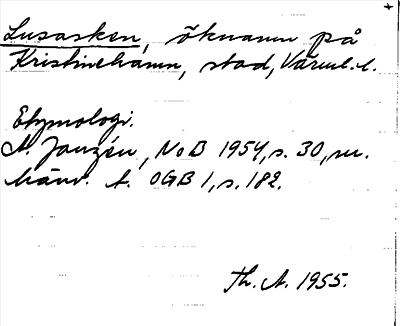 Lusasken, öknamn på
Kristinehamn, stad, Värml. l.
Etymologi.
A. Janzén, NoB 1954, s. 30, m.
hänv. t. OGB 1, s. 182.
Th. A. 1955.